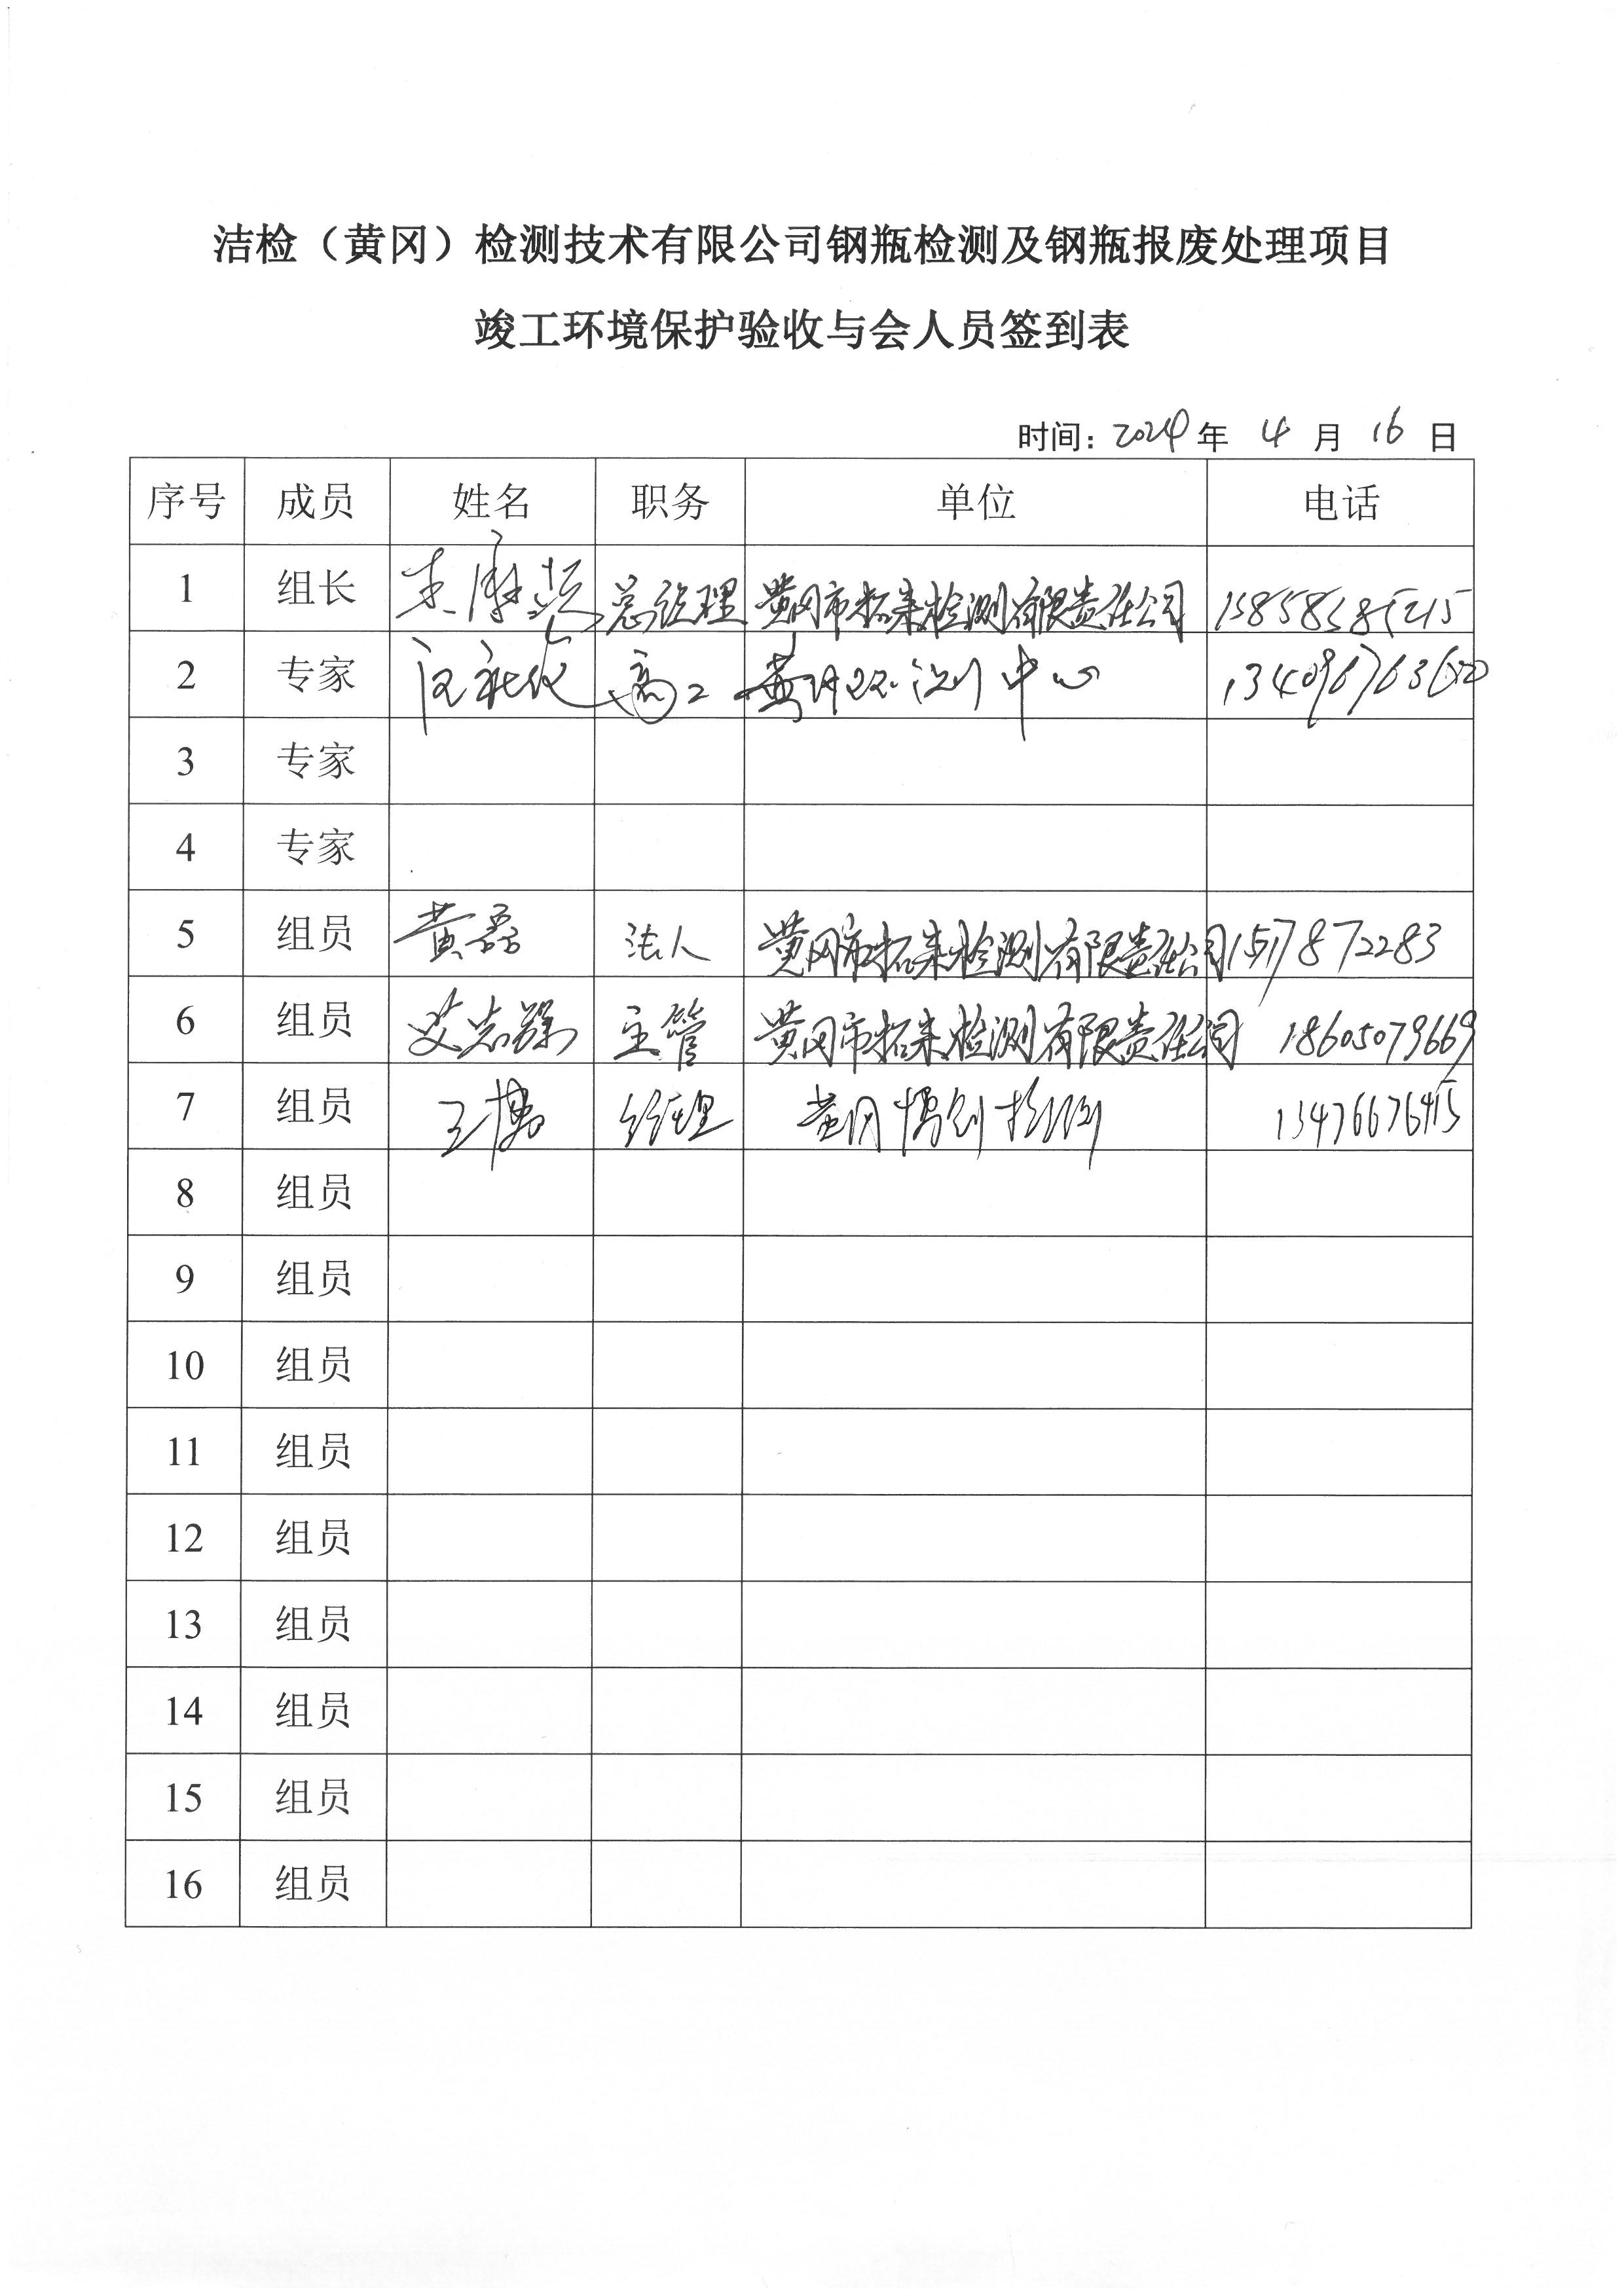 洁检（黄冈）检测技术有限公司钢瓶检测及钢瓶报废处理项目
竣工环境保护验收与会人员签到表
时间：2024年 4 月 16 日
序号 成员 姓名 职务 单位 电话
1 组长 总经理 黄冈市拓来检测有限责任公司 15858585215
2 专家 高工 中心
3 专家
4 专家
5 组员 黄磊 法人 黄冈市拓来检测有限责任公司 1517872283
6 组员 主管 黄冈市拓来检测有限责任公司 18605079669
7 组员 王博 经理 黄冈博创检测 13476676415
8 组员
9 组员
10 组员
11 组员
12 组员
13 组员
14 组员
15 组员
16 组员